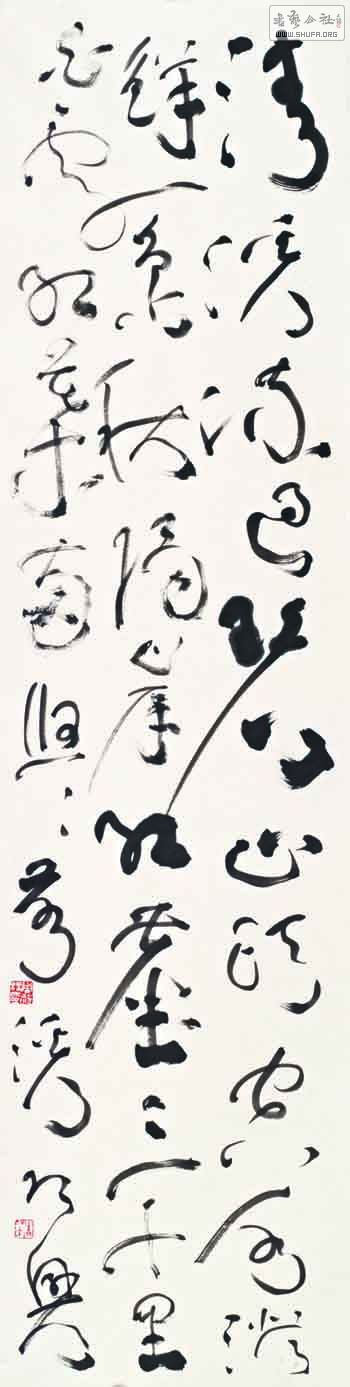 书艺公社
WWW.SHUFA.ORG
清溪流過碧山頭空水澄
鮮一色秋隔斷紅塵三十里
白雲紅葉兩悠悠